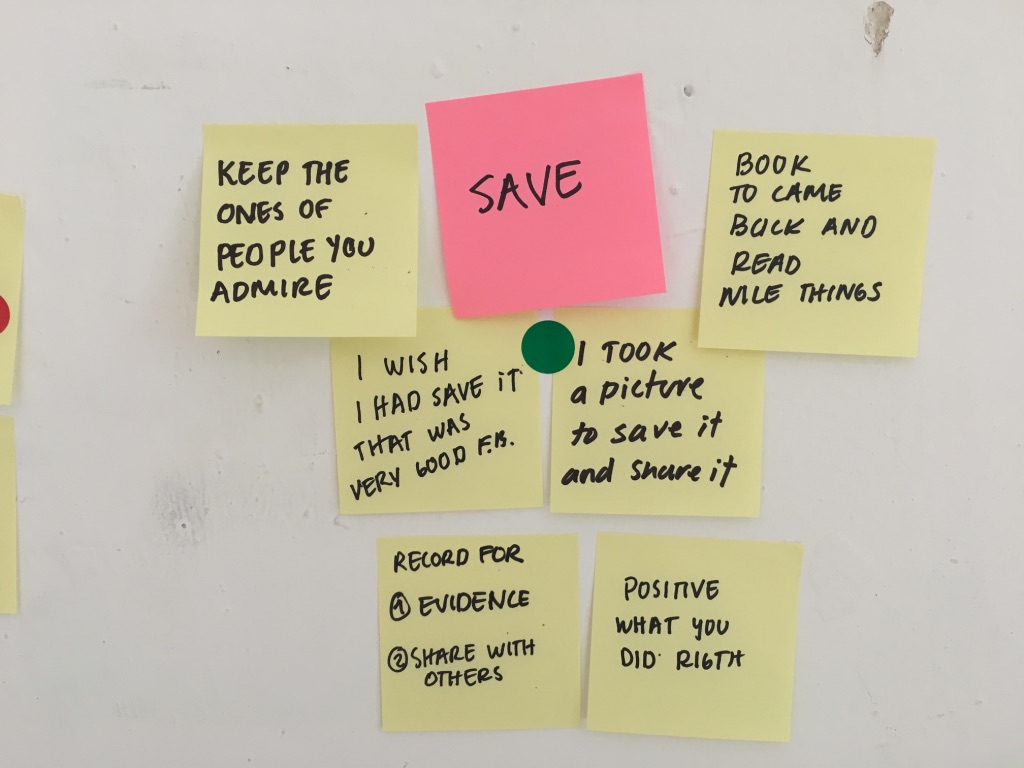 SAVE
KEEP THE
ONES OF
PEOPLE YOU
ADMIRE
BOOK
TO CAME
BACK AND
READ
NICE THINGS
I WISH
I HAD SAVE iT
THAT WAS
VERY GOOD F.B.
I TOOK
a picture
to save it
and share it
RECORD FOR
① EVIDENCE
② SHARE WITH
OTHERS
POSITIVE
WHAT YOU
DID RIGTH